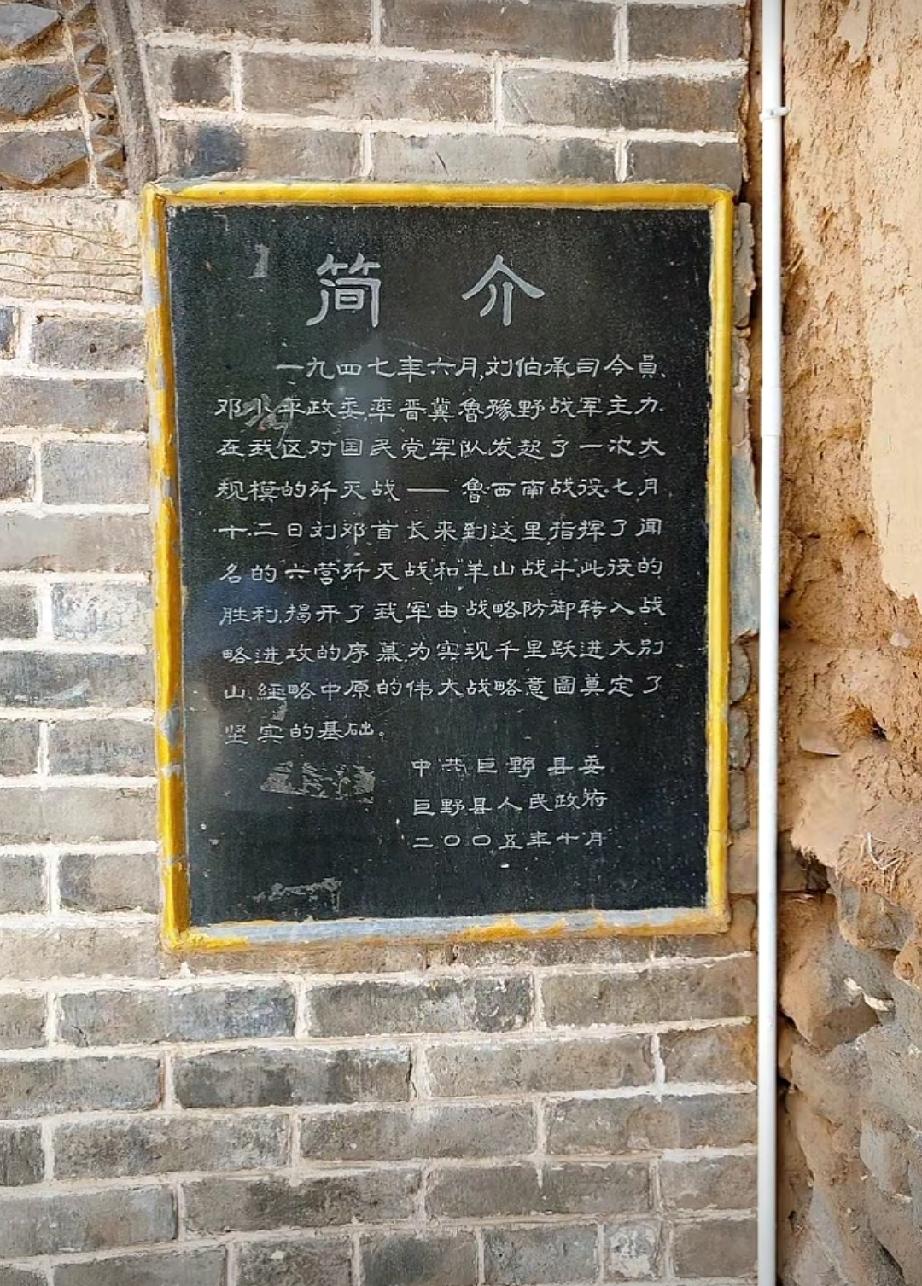 简介
一九四七年六月,刘伯承司令員、
邓小平政委,率晋冀魯豫野战军主力
在我区对国民党军队发起了一次大
规模的歼灭战——魯西南战役.七月
十二日刘邓首长来到这里指挥了闻
名的六营歼灭战和羊山战斗.此役的
胜利,揭开了我军由战略防御转入战
略进攻的序幕.为实现千里跃进大别
山、經略中原的伟大战略意圖奠定了
坚实的基础。
中共巨野县委
巨野县人民政府
二〇〇五年十月